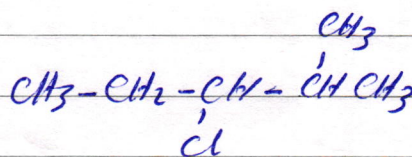 CH3
CH3-CH2-CH-CH CH3
Cl